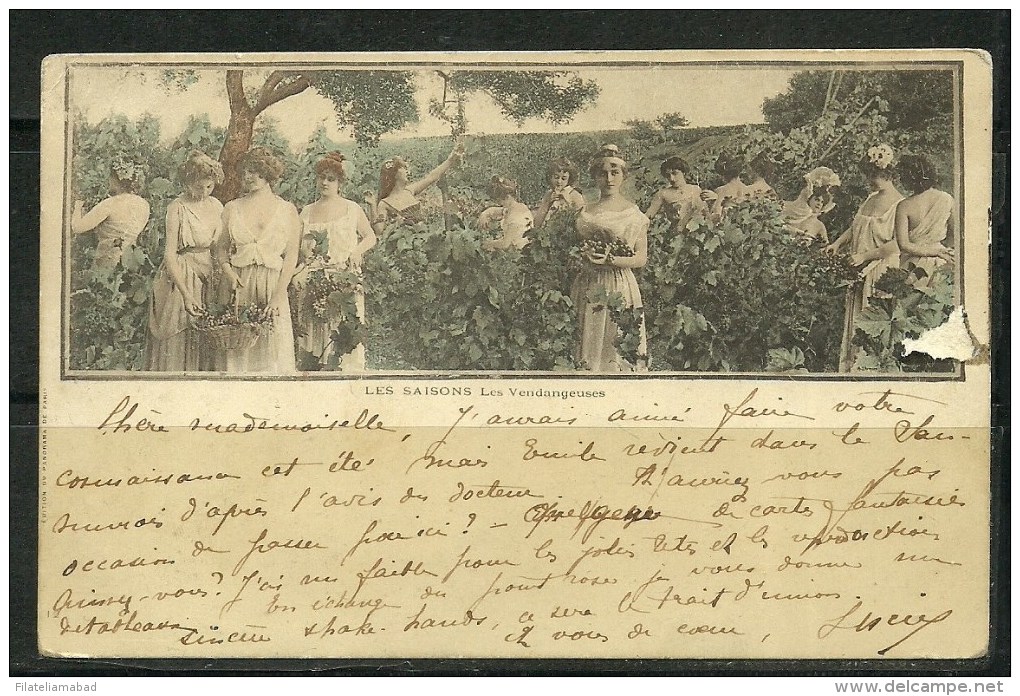 LES SAISONS Les Vendangeuses
EDITION DU PANORAMA DE PARIS
Chère mademoiselle, J'aurais aimé faire votre
connaissance cet été mais Emile revient dans le Sau-
murois d'après l'avis du docteur N'auriez vous pas
occasion de passer par ici? - de cartes fantaisies
vous? J'ai un faible pour les jolies têtes et les reproductions
de tableaux En échange du pont rose je vous donne un
sincère shake-hands, ce sera le trait d'union.
A vous de cœur,
Filateliamabad
www.delcampe.net